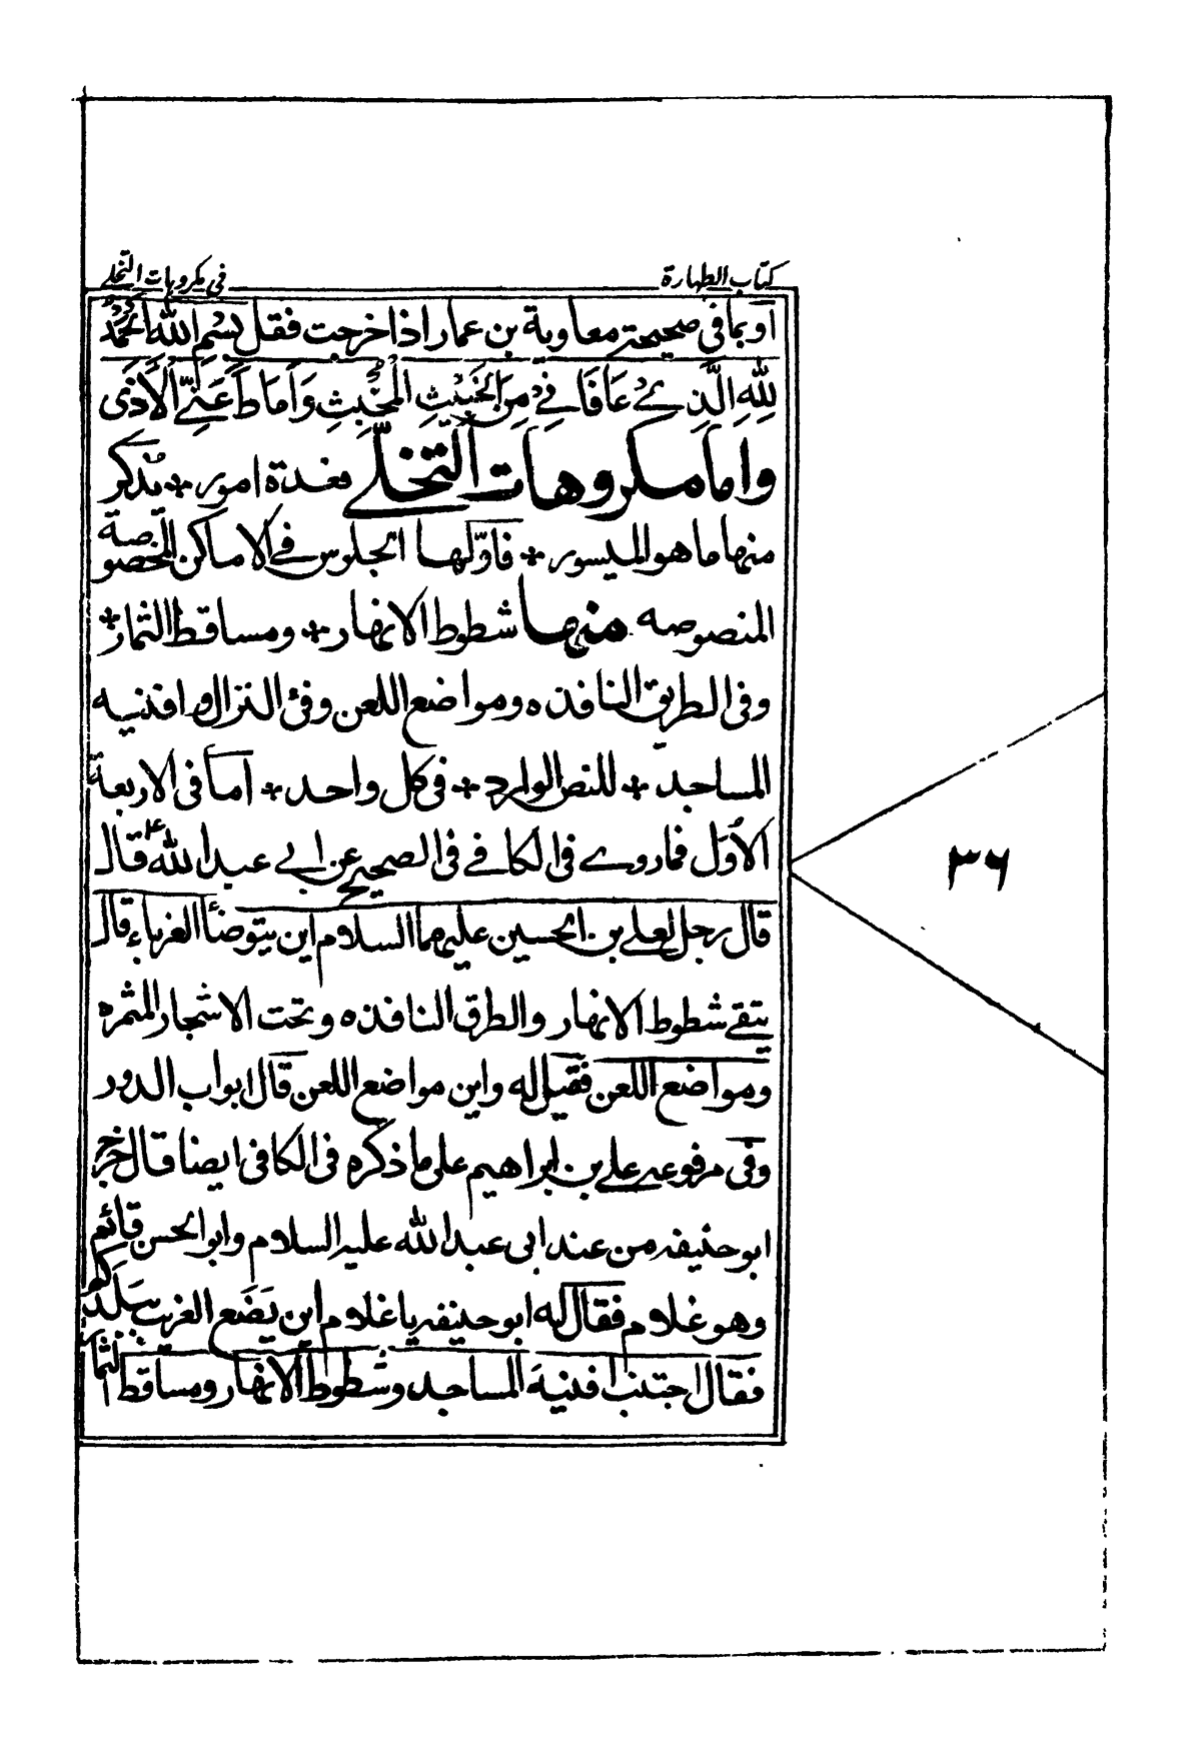 كتاب الطهارة
في مكروهات التخلي
اوبما في صحيحة معاوية بن عمار اذا خرجت فقل بِسْمِ اللهِ اَلْحَمْدُ
لِلّٰهِ الَّذِي عَافَانِي مِنَ الْخَبِيْثِ الْمُخْبِثِ وَاَمَاطَ عَنِّي الْاَذٰى
واما مكروهات التخلّي فعدة امور * يُذكر
منها ما هو الميسور * فاوّلها الجلوس في الاماكن المخصوصة
المنصوصه منها شطوط الانهار * ومساقط الثمار *
وفي الطريق النافذه ومواضع اللعن وفئ النزال وافنيه
المساجد * للنص الوارد * في كل واحد * اما في الاربعة
الاُوَل فماروي في الكافي في الصحيح عن ابي عبد الله ؑ قال
قال رجل لعلي بن الحسين عليهما السلام اين يتوضأ الغرباء قال
يتقي شطوط الانهار والطرق النافذه وتحت الاشجار المثمره
ومواضع اللعن فقيل له واين مواضع اللعن قال ابواب الدور
وفي مرفوعه علي بن ابراهيم على ما ذكره في الكافي ايضا قال خرج
ابو حنيفه من عند ابي عبد الله عليه السلام وابو الحسن قائم
وهو غلام فقال له ابو حنيفه يا غلام اين يَضَع الغريب ببلدكم
فقال اجتنب افنيةَ المساجد وشطوط الانهار ومساقط الثمار
٣٦